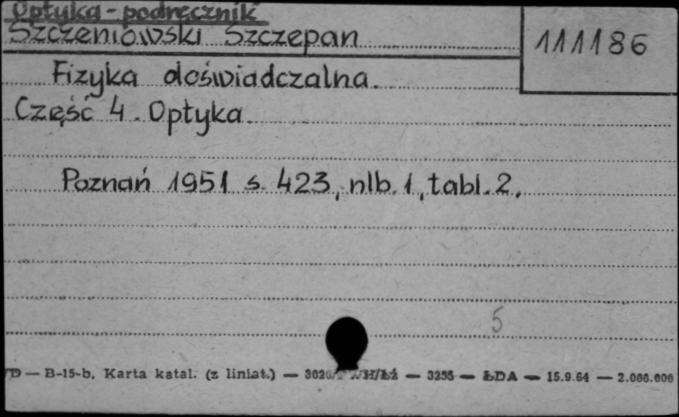 Optyka - podręcznik
Szczeniowski Szczepan
111186
Fizyka doświadczalna.
Część 4. Optyka.
Poznań 1951 s. 423, nlb. 1, tabl. 2.
5
B-15-b. Karta katal. (z liniat.) — — 3255 — ŁDA — 15.9.64 — 2.000.000